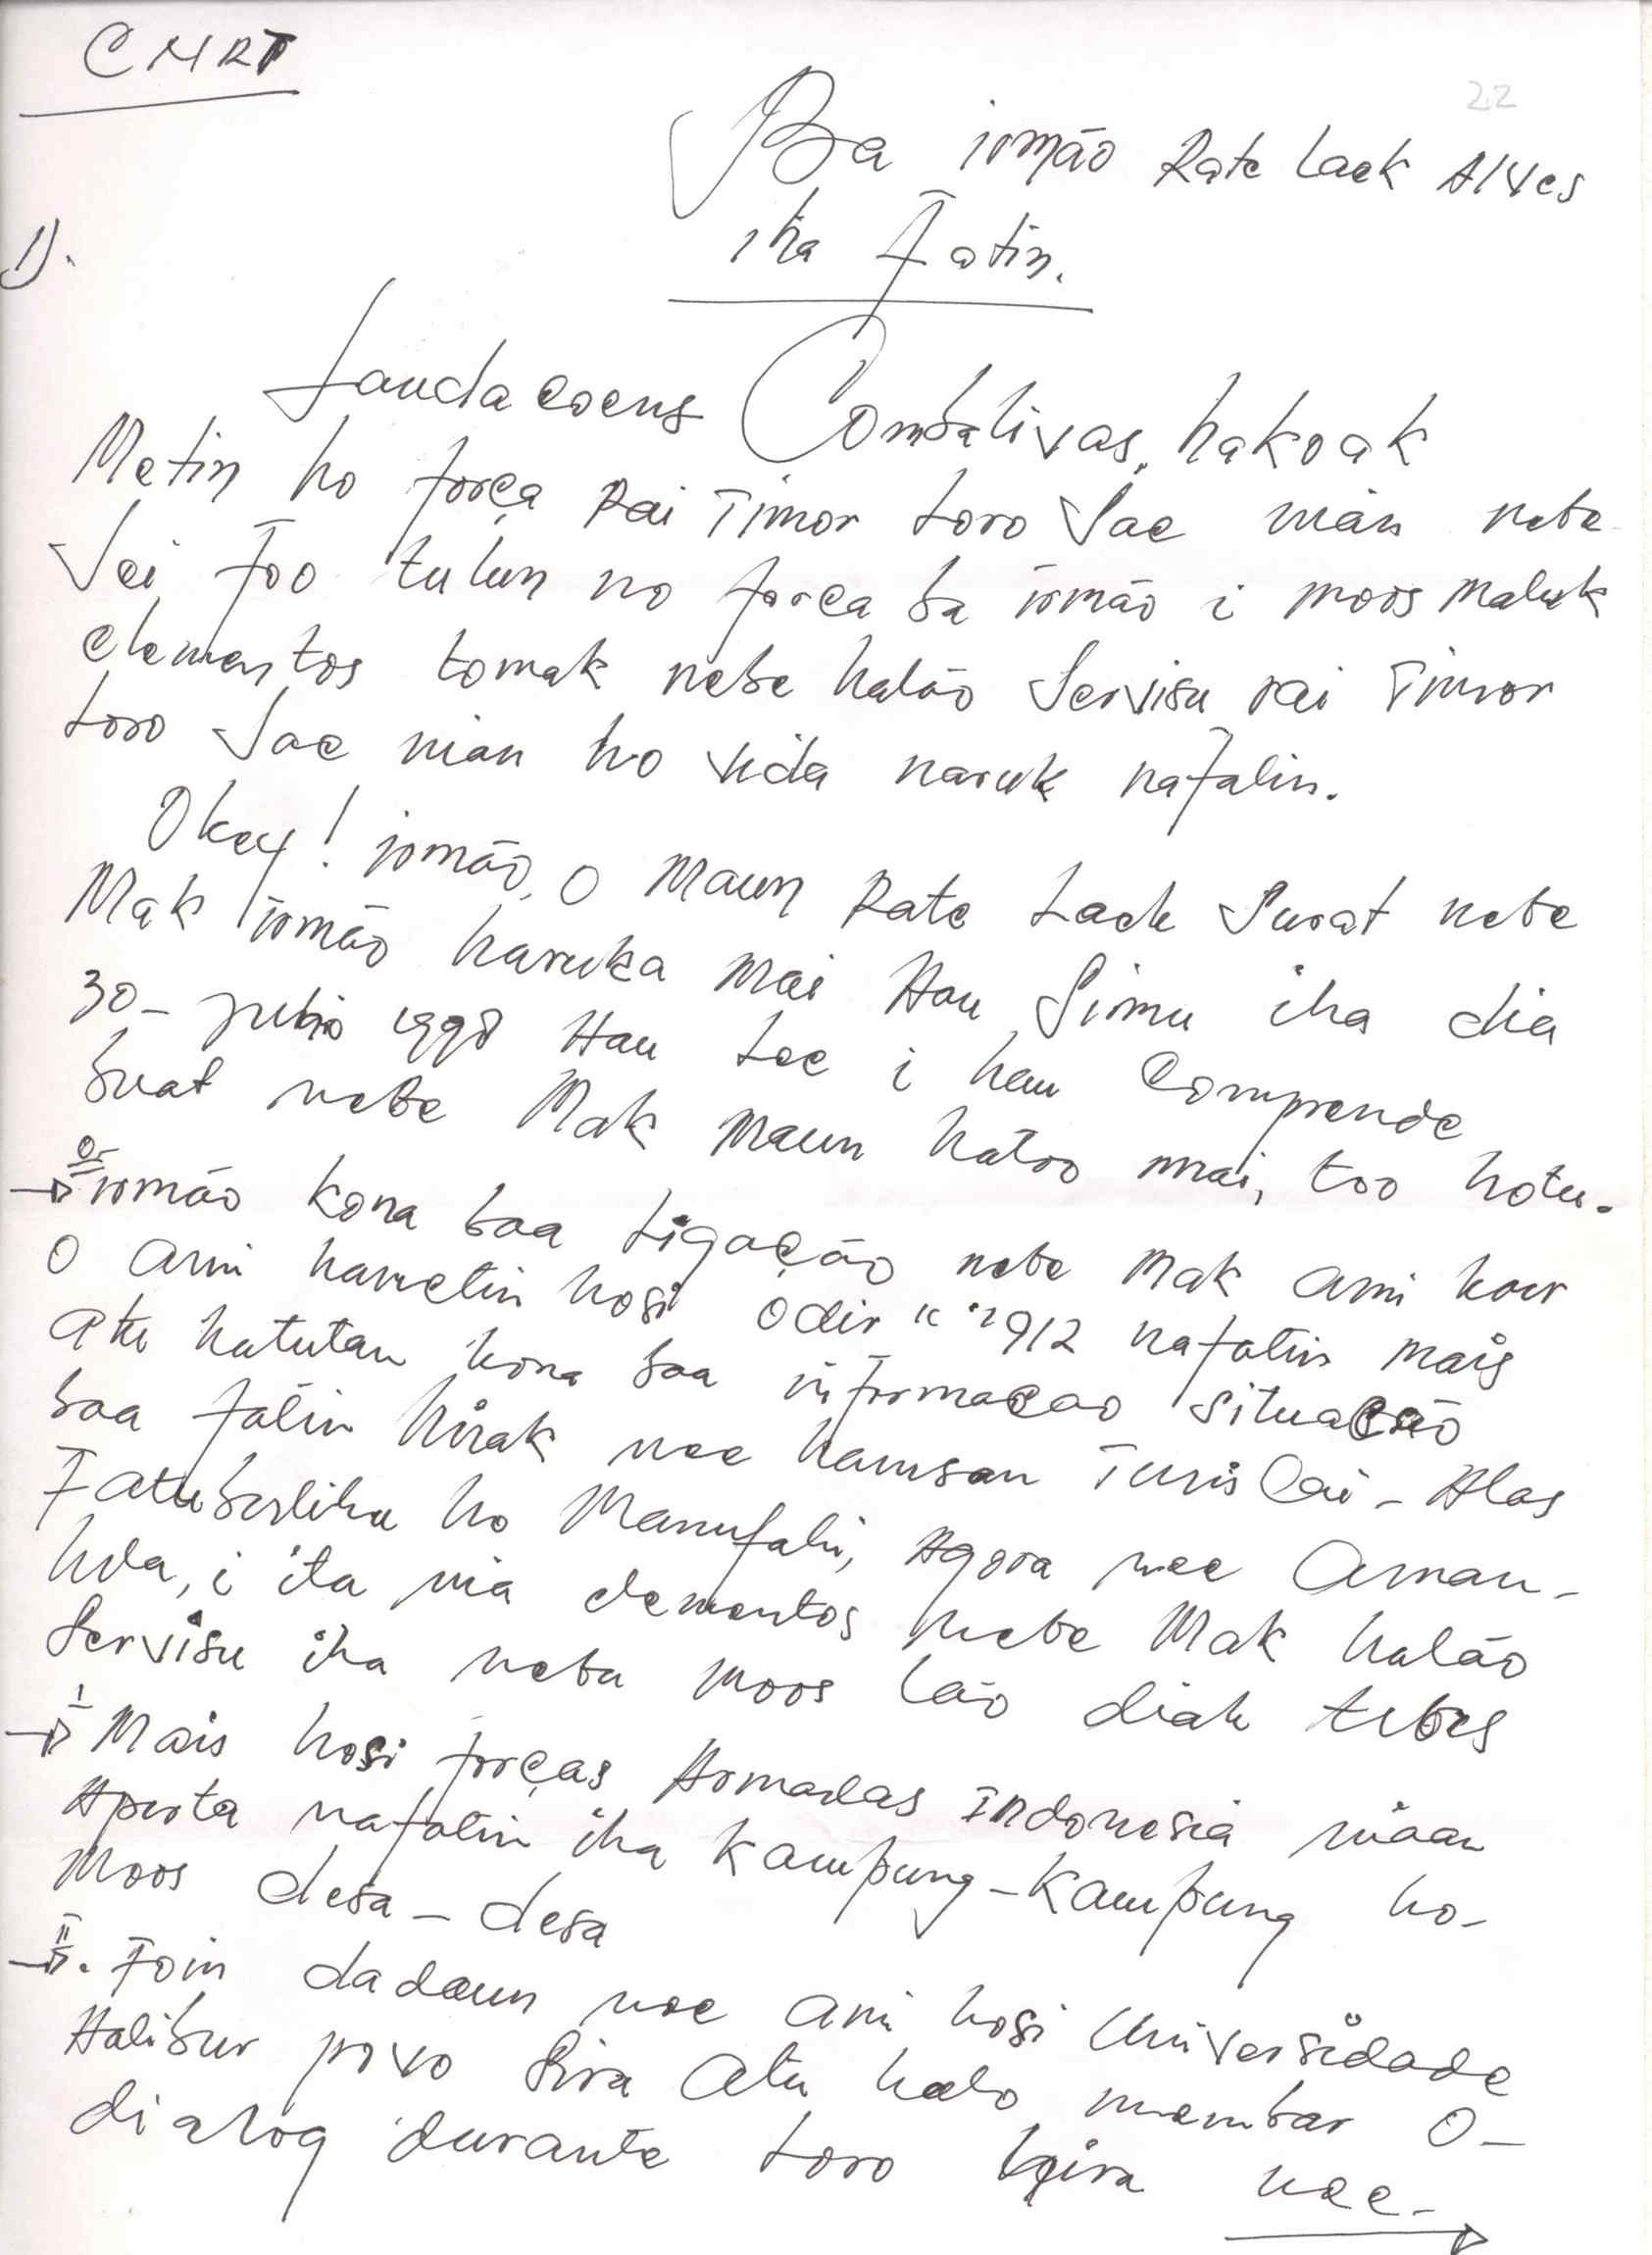 CNRT
22
Ba irmão Rate Laek Alves
iha Fatin.
1).
Saudacoens Combativas, hakoak
Metin ho força Rai Timor Loro Sae nian nebe
Sei foo tulun no força ba irmão i moos maluk
elementos tomak nebe halão Servisu rai Timor
Loro Sae nian ho vida naruk nafatin.
Okey! irmão, o Maun Rate Laek Surat nebe
Mak irmão haruka mai Hau Simu iha dia
30- julho 1998 Hau Lee i hau Comprende
buat nebe Mak Maun hatoo mai, too hotu.
→ irmão kona baa Ligação nebe Mak ami hour
o ami hametin hosi Odir "912 nafatin mais
atu hatutan kona baa informacao situacão
baa fatin hirak nee hanesan Turiscai - Alas
Fatuberlihu ho Manufahi, Agora nee aman-
hela, i ita nia elementos nebe Mak halão
Servisu iha neba moos lão diak tebes
→ I Mais hosi forças Armadas Indonesia niaan
Aperta nafatin iha Kampung-Kampung ho-
moos desa - desa
→ II. Foin dadaun nee ami hosi Universidade
Halibur povo Sira Atu halo membar o-
dialog durante Loro hira nee-